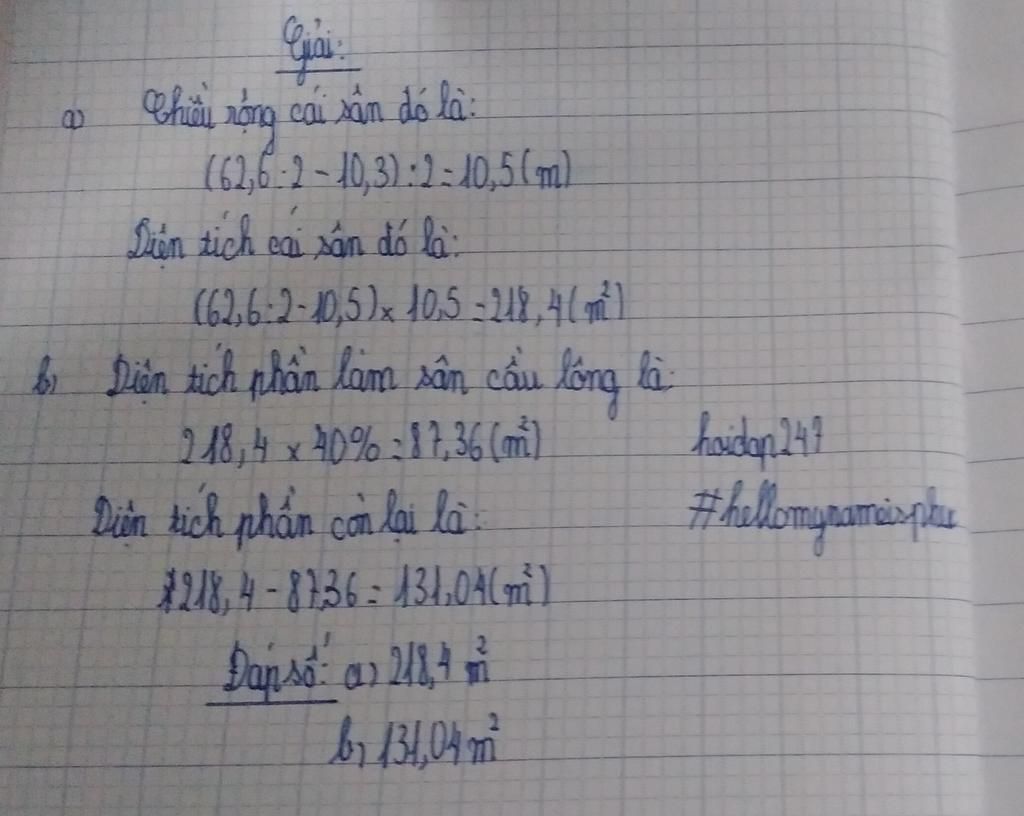 Giải:
a) Chiều rộng cái sân đó là:
(62,6:2-10,3):2=10,5(m)
Diện tích cái sân đó là:
(62,6:2-10,5)x10,5=218,4(m²)
b, Diện tích phần làm sân cầu lông là:
218,4 x 40%=87,36(m²)
hoidap247
Diện tích phần còn lại là:
#hellomynameisphu
218,4-87,36=131,04(m²)
Đáp số: a) 218,4 m²
b, 131,04 m²